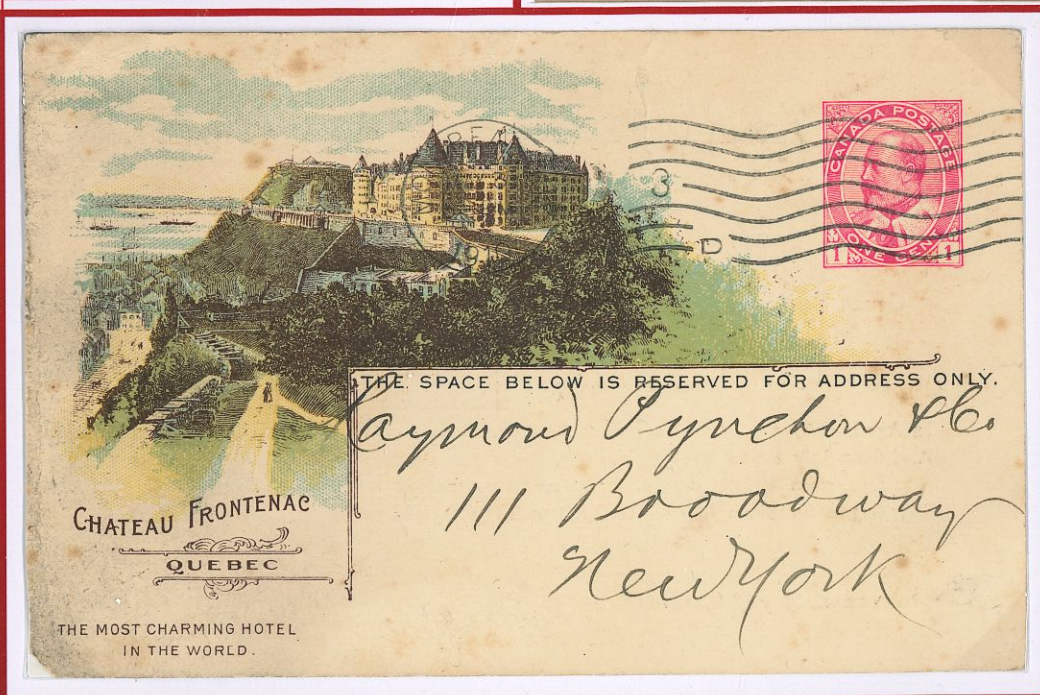 CANADA POSTAGE
ONE CENT
1 1
3
D
THE SPACE BELOW IS RESERVED FOR ADDRESS ONLY.
Raymond Pynchon & Co
111 Broadway
New York
CHATEAU FRONTENAC
QUEBEC
THE MOST CHARMING HOTEL
IN THE WORLD.